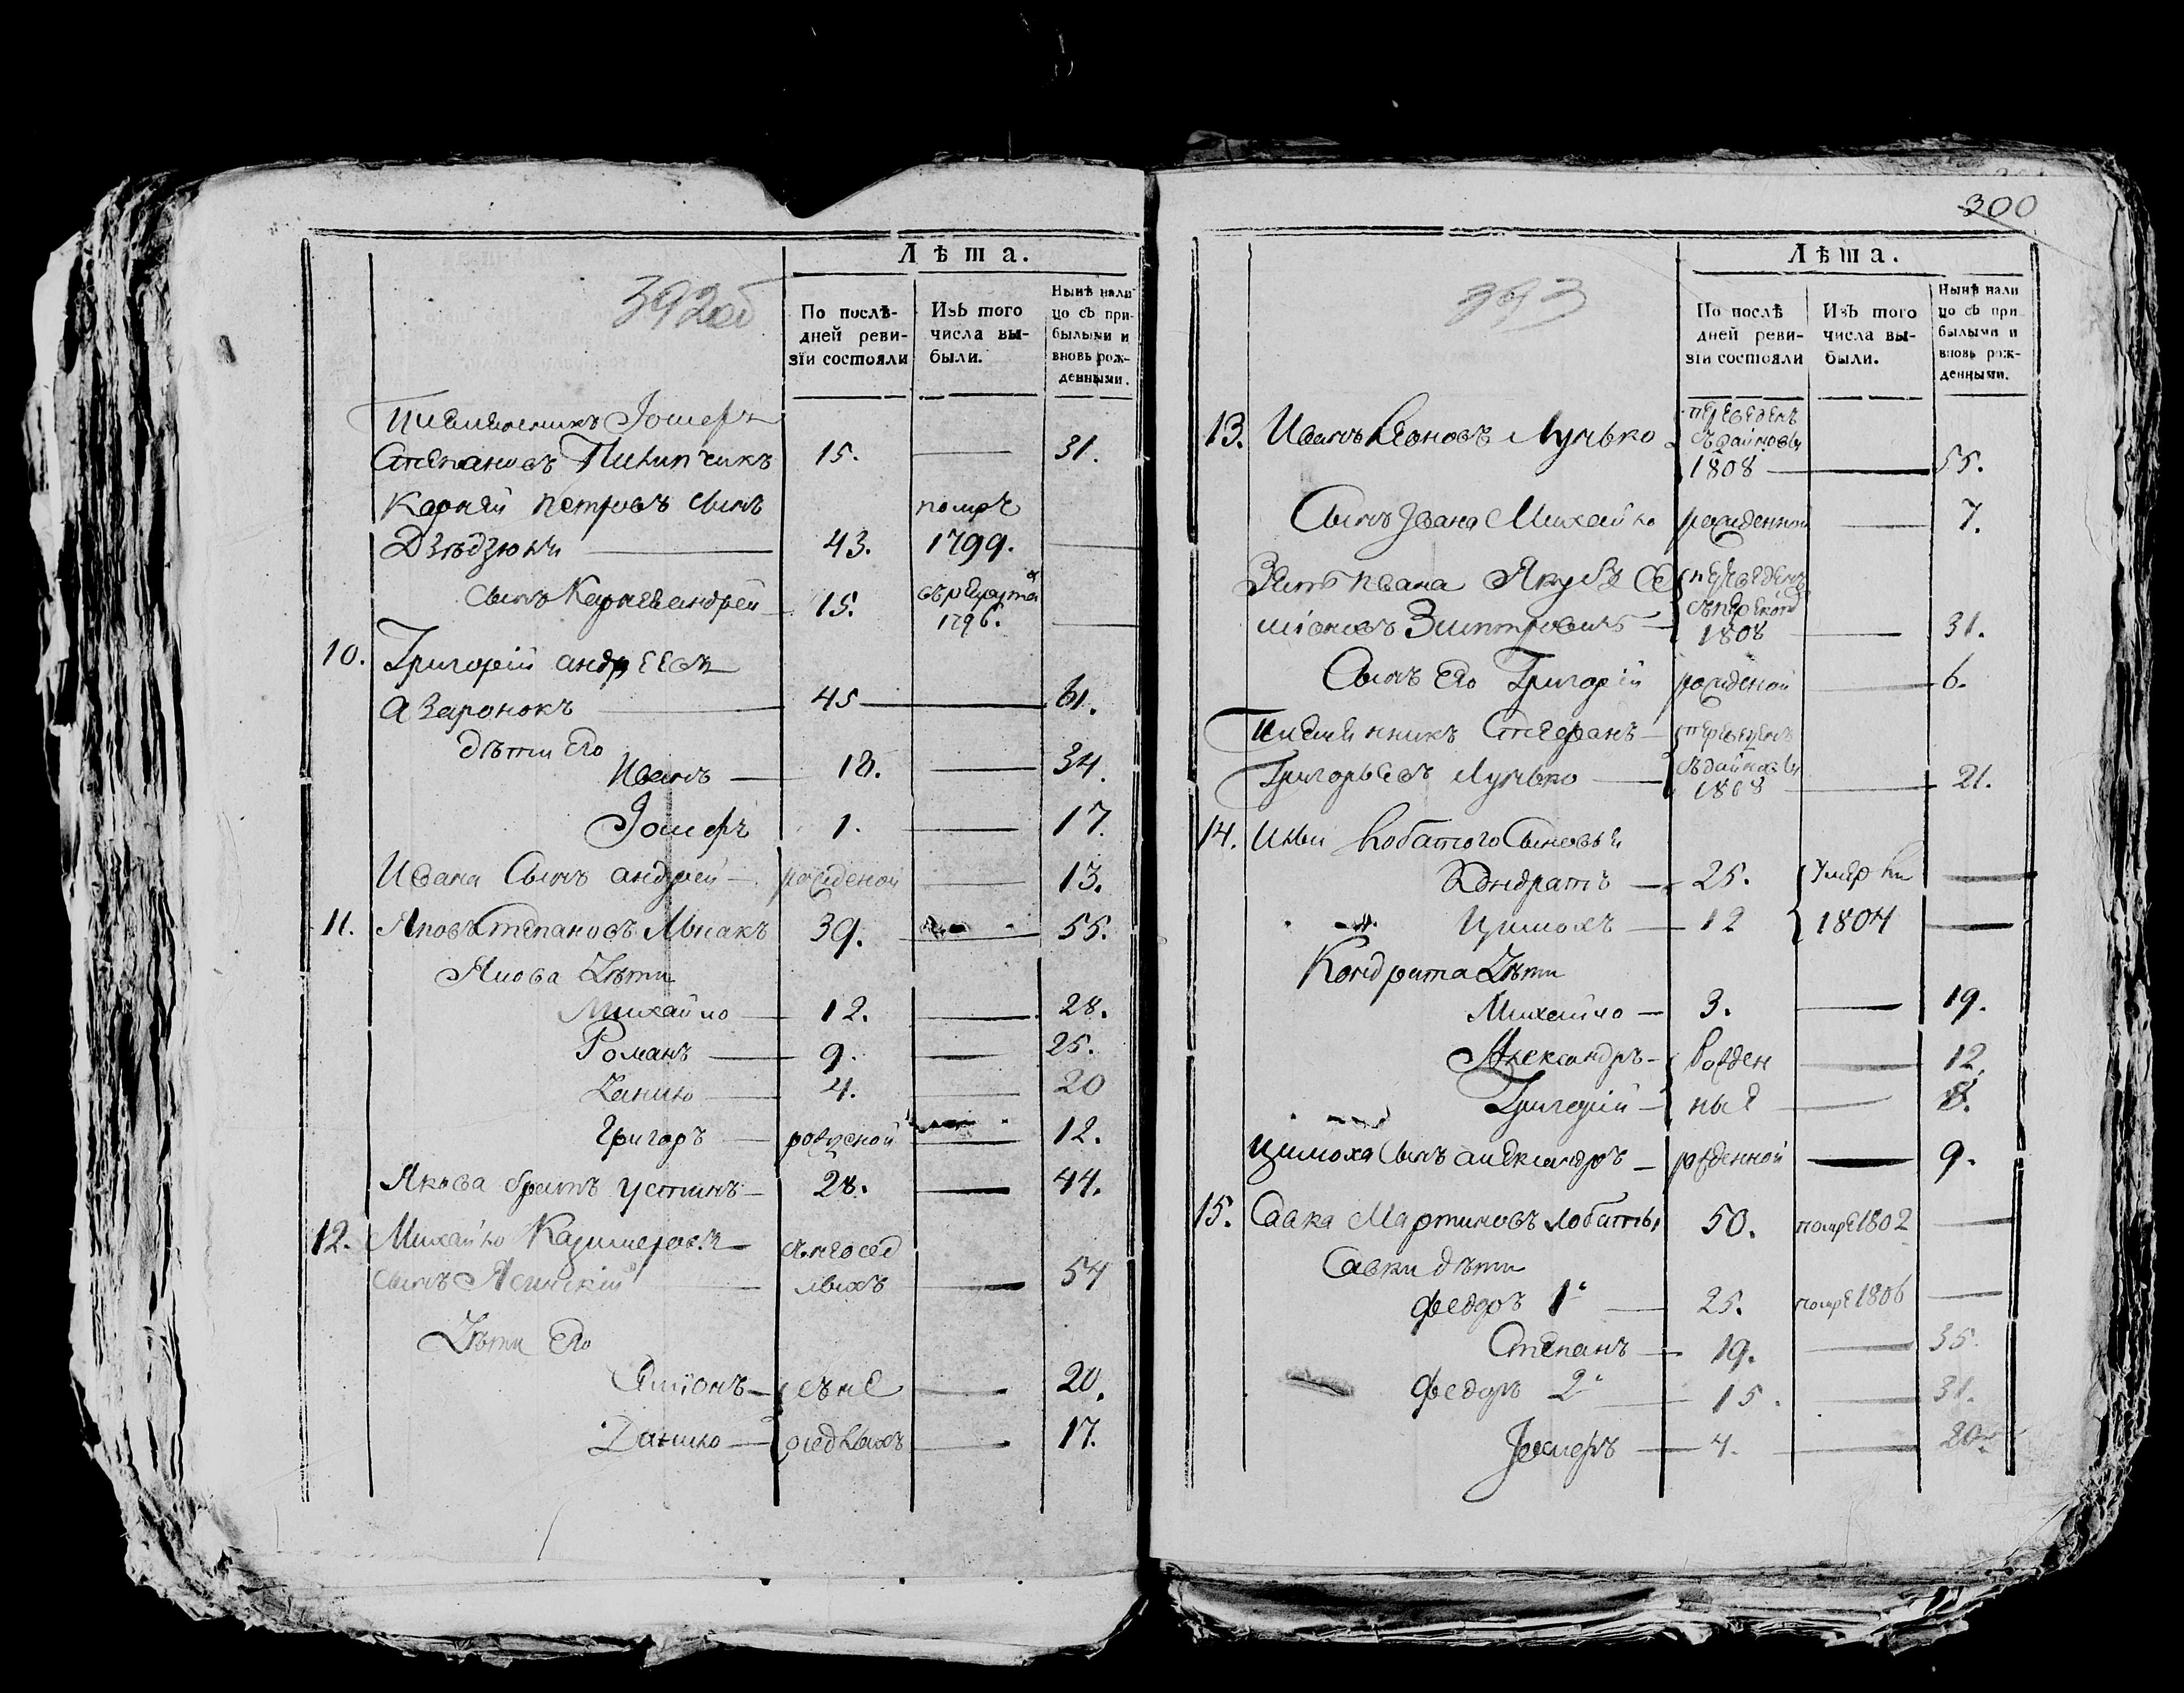 392об
Лѣта.
По послѣдней ревизіи состояли
Изъ того числа выбыли.
Нынѣ налицо съ прибылыми и вновь рожденными.
Племенникъ Іозефъ
Степановъ Пилипчикъ 15. — 31.
Карнѣй Петровъ сынъ помре
43. 1799. —
сынъ Карнея андрей 15. 1796. —
10. Григорій андреевъ
Азаронокъ 45 — 61.
дѣти Его
Иванъ — 18. — 34.
Іозефъ 1. — 17.
Ивана Сынъ андрей — рожденой — 13.
11. Степановъ 39. — 55.
дѣти
Михайло — 12. — 28.
Романъ — 9. — 25.
Данило — 4. — 20
Григоръ — рожденой — 12.
Якова братъ Устинъ — 28. — 44.
12. Михайло Казимеровъ
сынъ Ясинскій — 54
Дѣти Его
Симонъ — 20.
Данило — 17.
300
393
Лѣта.
По послѣдней ревизіи состояли
Изъ того числа выбыли.
Нынѣ налицо съ прибылыми и вновь рожденными.
переведенъ
13. Иванъ Леоновъ Лунько
1808 — 55.
Сынъ Ивана Михайло рожденной — 7.
Зять Ивана Якубъ Се переведенъ
міоновъ
1808 — 31.
Сынъ Его Григорій рожденой — 6.
Племенникъ Стефанъ — переведенъ
Григорьевъ Лунько —
1808 — 21.
14. Ильи Лобатого Сыновьи
Кондратъ — 25. Умерли —
Цимохъ — 12 1804 —
Кондрата Дѣти
Михайло — 3. — 19.
Александръ — Рожден — 12.
Григорій — ные — 8.
Цимоха Сынъ александръ — рожденной — 9.
15. Савка Мартиновъ Лобаты 50. помре 1802 —
Савки дѣти
Федоръ 1й — 25. помре 1806 —
Степанъ — 19. — 35.
Федоръ 2й — 15. — 31.
Іозефъ — 4. — 20.